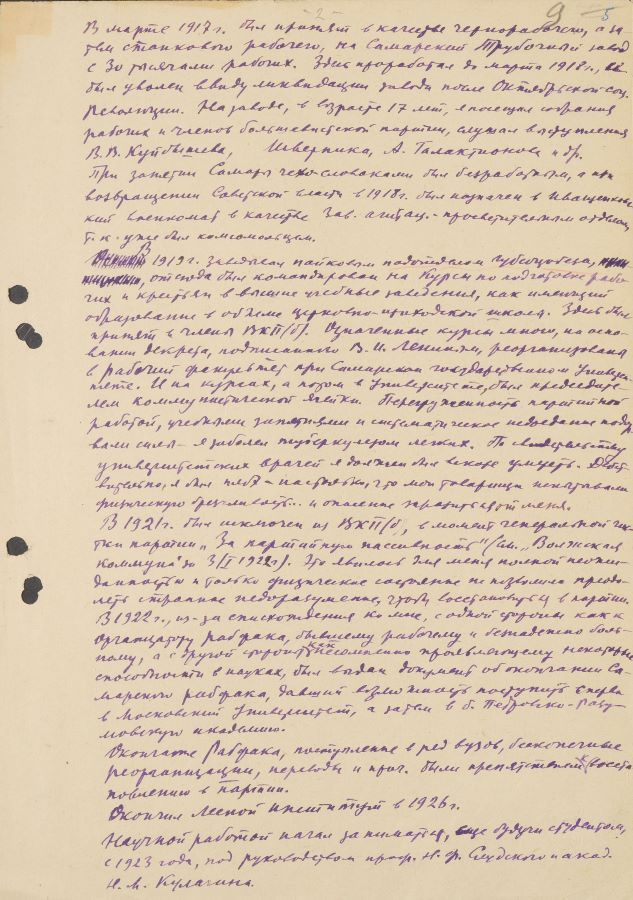 - 2 -
9 5
В марте 1917 г. был принят в качестве чернорабочего, а за
тем станкового рабочего, на Самарский Трубочный завод
с 30 тысячами рабочих. Здесь проработал до марта 1918 г.,
был уволен ввиду ликвидации завода после Октябрьской соц.
Революции. На заводе, в возрасте 17 лет, я посещал собрания
рабочих и членов большевистской партии, слушал выступления
В. В. Куйбышева, Шверника, А. Галактионова и др.
При занятии Самары чехо-словаками был безработным, а при
возвращении Советской власти в 1918 г. был назначен в Иващенков
ский военкомат в качестве Зав. агитац.-просветительным отделом,
т. к. уже был комсомольцем.
В 1919 г. заведовал пайковым подотделом Губсоцобеза,
отсюда был командирован на Курсы по подготовке рабо-
чих и крестьян в высшие учебные заведения, как имеющий
образование в объеме церковно-приходской школы. Здесь был
принят в члены ВКП/б/. Означенные курсы мною, на осно-
вании декрета, подписанного В. И. Лениным, реорганизованы
в рабочий факультет при Самарском государственном Универси
тете. И на курсах, а потом в Университете, был председате
лем коммунистической ячейки. Перегруженность партийной
работой, учебными занятиями и систематическое недоедание подор
вали силы - я заболел туберкулезом легких. По свидетельству
университетских врачей я должен был вскоре умереть. Дейст
вительно, я был плох - настолько, что мои товарищи испытывали
физическую брезгливость.. и опасение заразиться от меня.
В 1921 г. был исключен из ВКП/б/, в момент генеральной чис
тки партии „За партийную пассивность" (см. „Волжская
коммуна" от 3/I 1922 г). Это явилось для меня полной неожи-
данностью и только физическое состояние не позволило преодо-
леть странное недоразумение, чтобы восстановиться в партии.
В 1922 г., из-за снисхождения ко мне, с одной стороны как к
организатору рабфака, бывшему рабочему и безнадежно боль-
ному, а с другой стороны, как несомненно проявляющему некоторые
способности в науках, был выдан документ об окончании Са-
марского рабфака, давший возможность поступить сперва
в Московский Университет, а затем в б. Петровско-Разу-
мовскую академию.
Окончание Рабфака, поступление в ряд вузов, бесконечные
реорганизации, переводы и проч. были препятствием к восста
новлению в Партии.
Окончил Лесной институт в 1926 г.
Научной работой начал заниматься, еще будучи студентом,
с 1923 года, под руководством проф. Н. Ф. Слудского и акад.
Н. М. Кулагина.